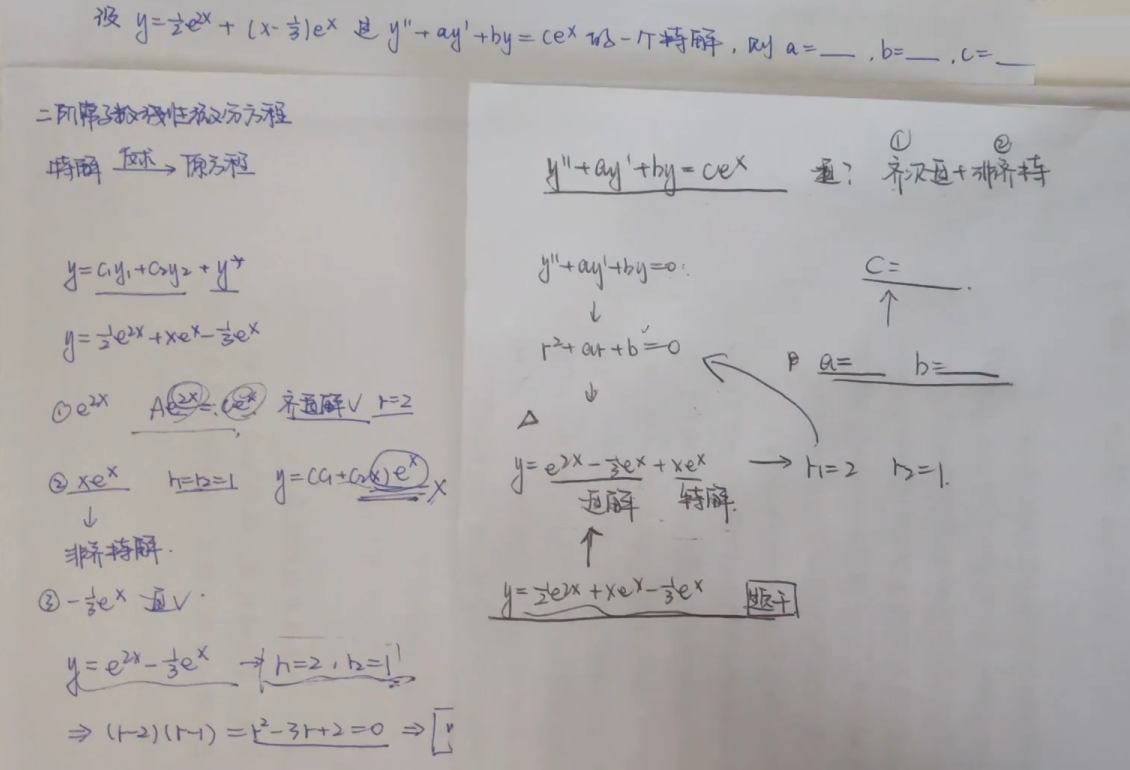 设 y=½e^{2x}+(x-⅓)e^x 是 y''+ay'+by=ce^x 的一个特解,则 a=__,b=__,c=__
二阶常系数线性微分方程
特解 反求→ 原方程
y=c₁y₁+c₂y₂+y*
y=½e^{2x}+xe^x-⅓e^x
①e^{2x} Ae^{2x}=ce^x 齐通解√ r=2
②xe^x r₁=r₂=1 y=(c₁+c₂x)e^x ×
↓
非齐特解.
③-⅓e^x 通√.
y=e^{2x}-⅓e^x → r₁=2,r₂=1
⇒(r-2)(r-1)=r²-3r+2=0⇒
y''+ay'+by=ce^x 通? ①齐次通+②非齐特
y''+ay'+by=0
↓
r²+ar+b=0
↓
△
y=e^{2x}-⅓e^x+xe^x → r₁=2 r₂=1.
通解 特解
↑
y=½e^{2x}+xe^x-⅓e^x 题干
c=__.
↑
a=__ b=__